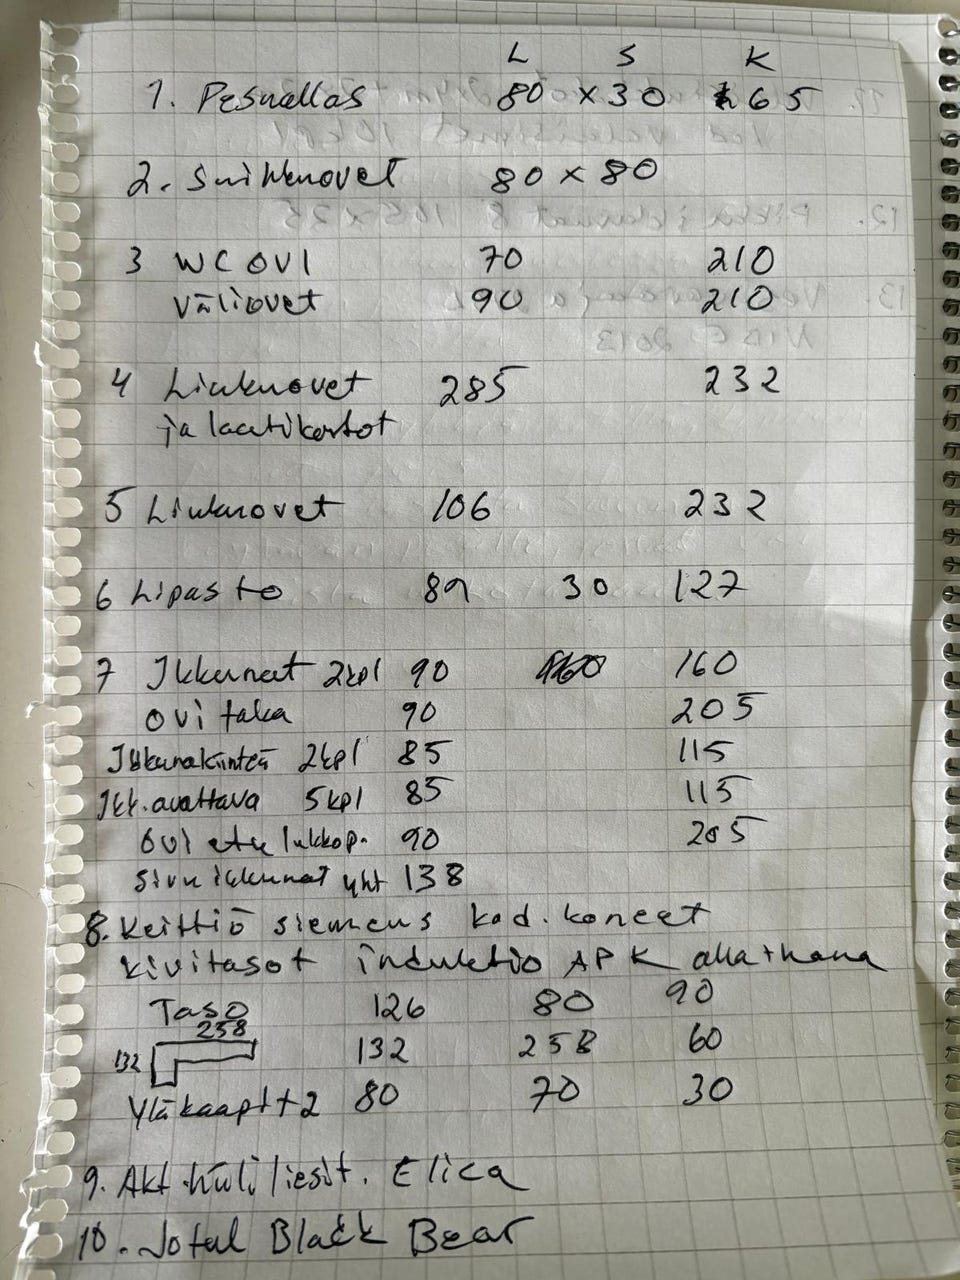 L S K
1. Pesuallas 80 x 30 65
2. Suihkuovet 80 x 80
3 WC OVI 70 210
Väliovet 90 210
4 Liukuovet 285 232
ja laatikostot
5 Liukuovet 106 232
6 Lipasto 89 30 127
7 Ikkunat 2kpl 90 160
Ovi taka 90 205
Ikkunakiinteä 2kpl 85 115
Ikk. avattava 5kpl 85 115
Ovi etu lukkop. 90 205
Sivuikkunat yht 138
8. Keittiö siemens kod. koneet
kivitasot induktio APK allat hana
Taso 126 80 90
258
132 132 258 60
Yläkaapit 2 80 70 30
9. Akt. hiili liesit. Elica
10. Jotul Black Bear